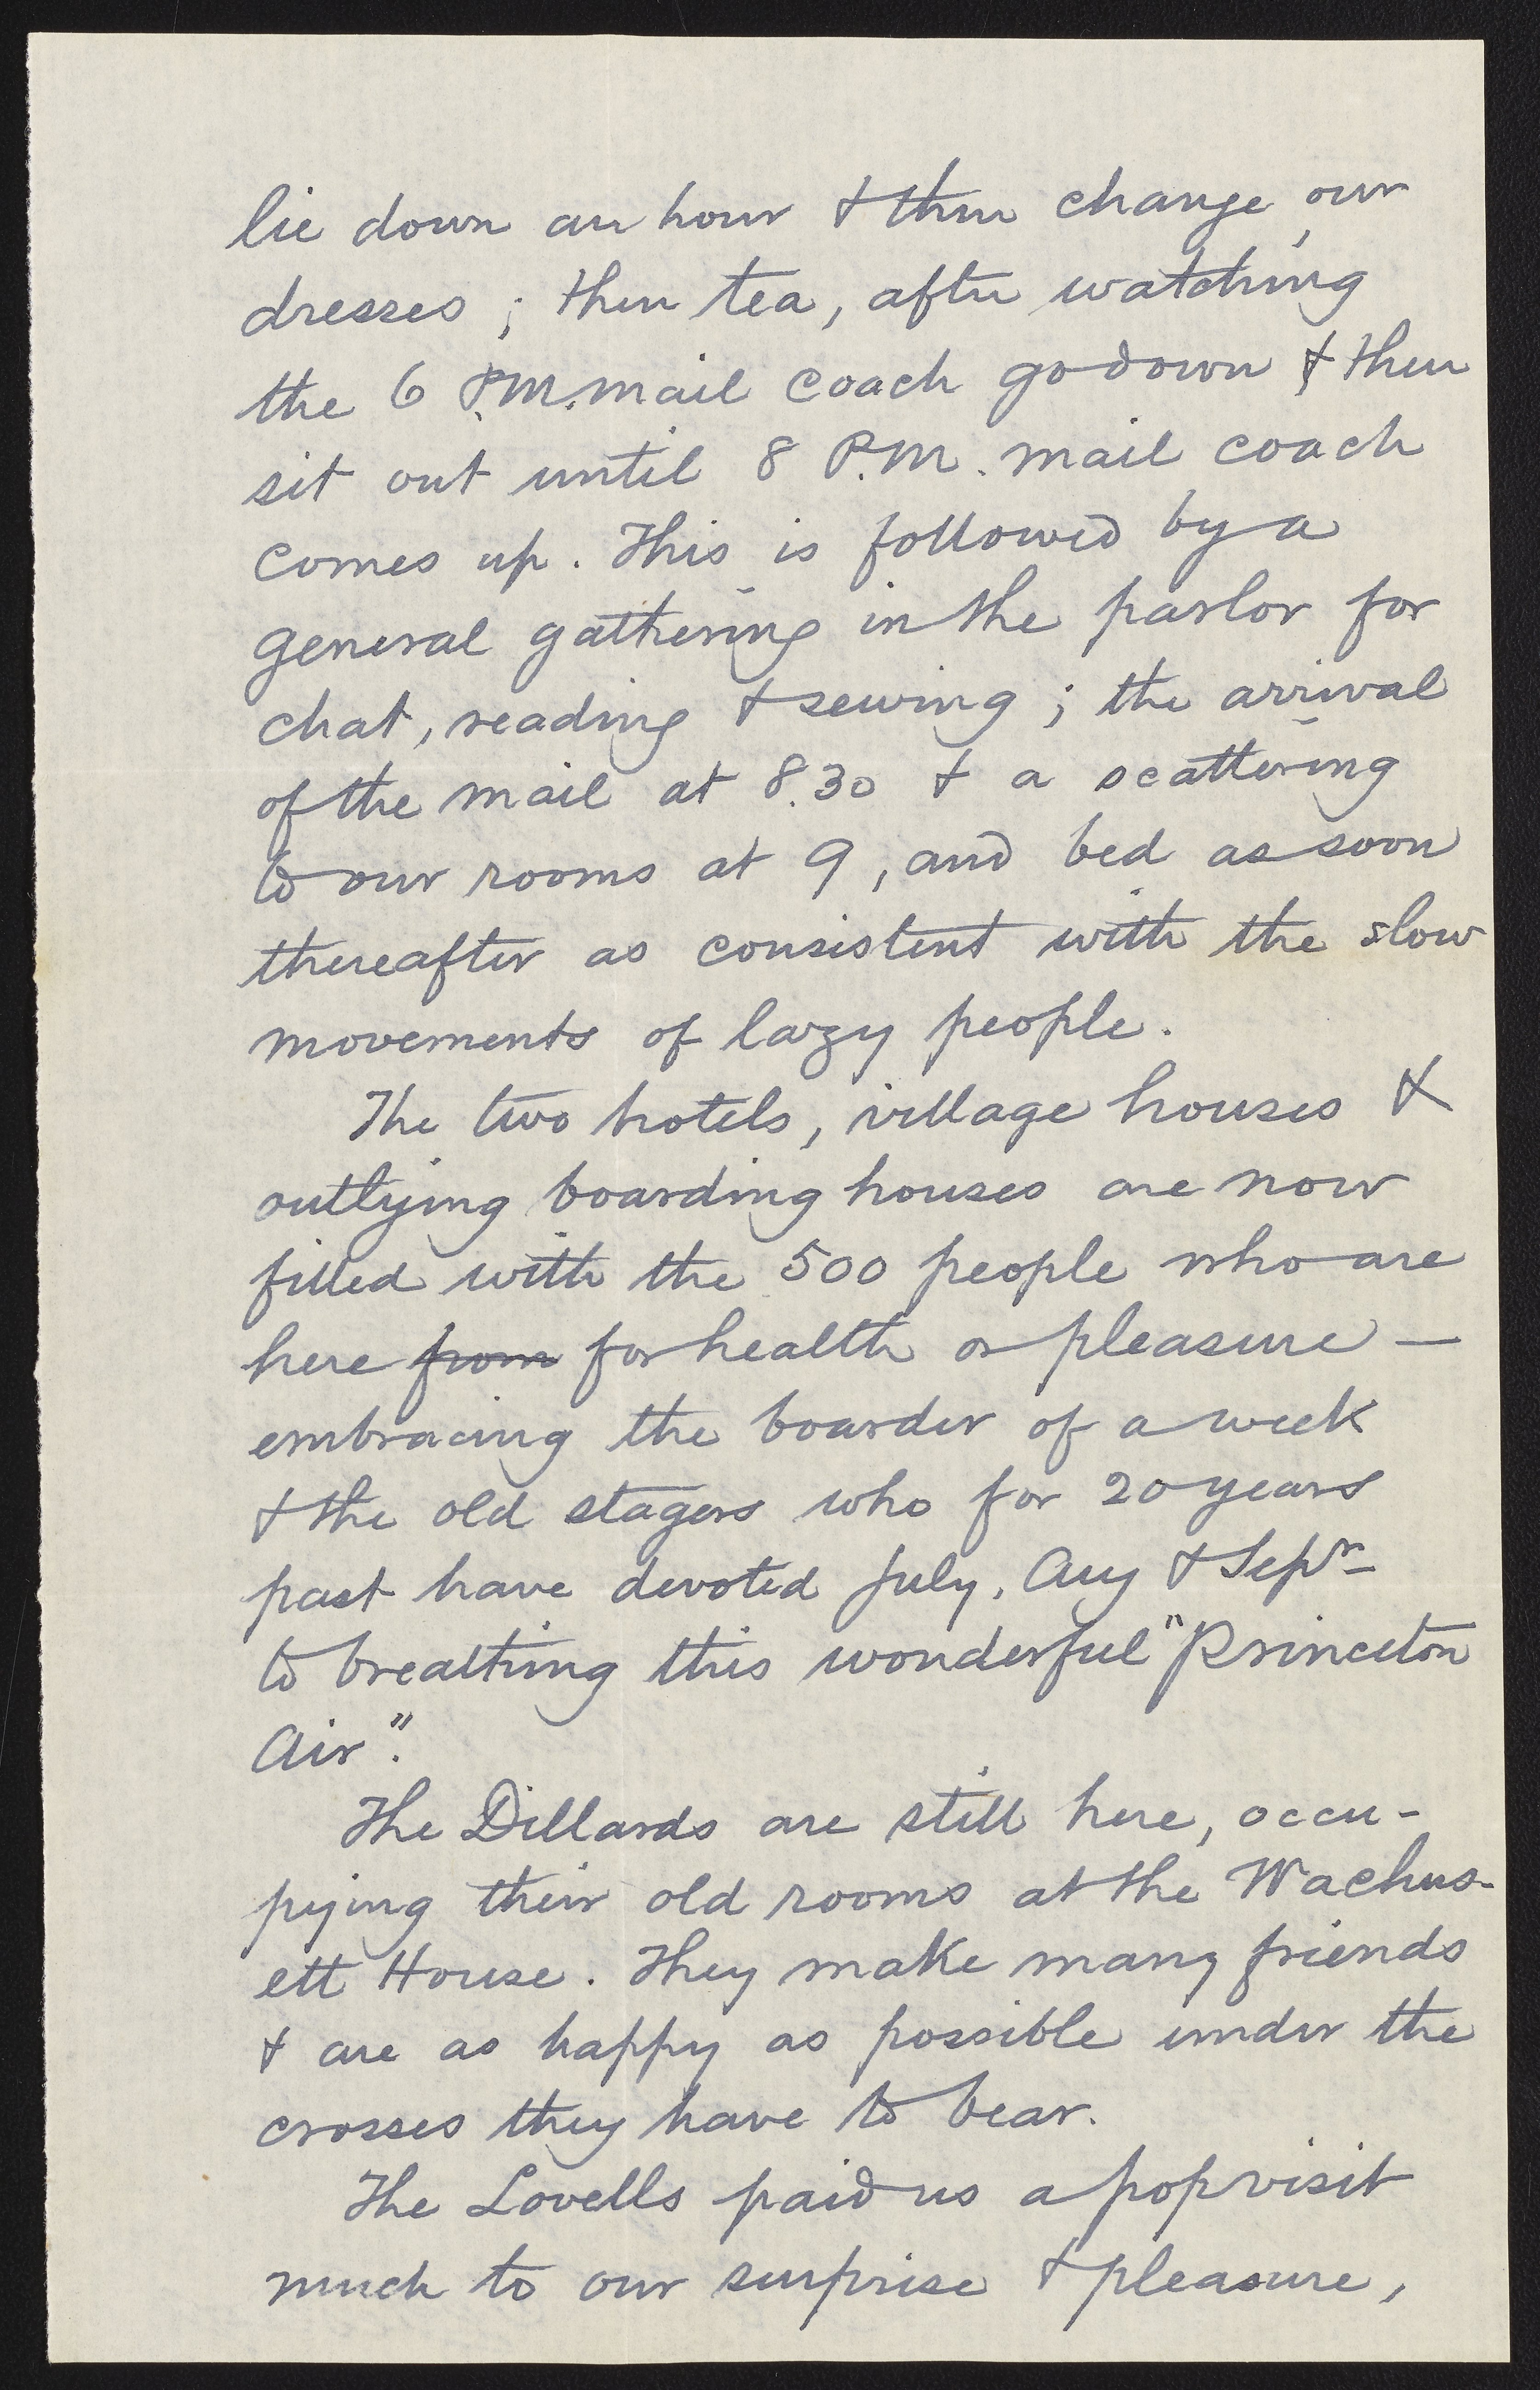 lie down an hour & then change our
dresses; then tea, after watching
the 6 P.M. mail coach go down & then
sit out until 8 P.M. mail coach
comes up. This is followed by a
general gathering in the parlor for
chat, reading & sewing; the arrival
of the mail at 8.30 & a scattering
to our rooms at 9, and bed as soon
thereafter as consistent with the slow
movements of lazy people.
The two hotels, village houses &
outlying boarding houses are now
filled with the 500 people who are
here from for health or pleasure —
embracing the boarder of a week
& the old stagers who for 20 years
past have devoted July, Aug & Sepr
to breathing this wonderful "Princeton
Air".
The Dillards are still here, occu-
pying their old rooms at the Wachus-
ett House. They make many friends
& are as happy as possible under the
crosses they have to bear.
The Lovells paid us a pop visit
much to our surprise & pleasure,